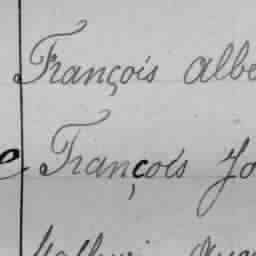 François Albe
e François Jo